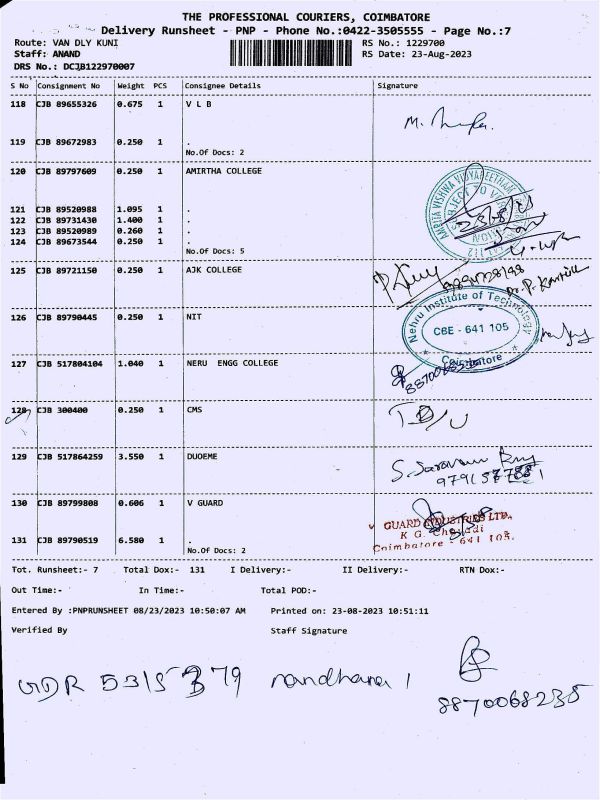 THE PROFESSIONAL COURIERS, COIMBATORE
Delivery Runsheet - PNP - Phone No.:0422-3505555 - Page No.:7
Route: VAN DLY KUNI RS No.: 1229700
Staff: ANAND RS Date: 23-Aug-2023
DRS No.: DCJB122970007
S No Consignment No Weight PCS Consignee Details Signature
118 CJB 89655326 0.675 1 V L B
119 CJB 89672983 0.250 1 .
No.Of Docs: 2
120 CJB 89797609 0.250 1 AMIRTHA COLLEGE
121 CJB 89520988 1.095 1 .
122 CJB 89731430 1.400 1 .
123 CJB 89520989 0.260 1 .
124 CJB 89673544 0.250 1 .
No.Of Docs: 5
125 CJB 89721150 0.250 1 AJK COLLEGE
126 CJB 89790445 0.250 1 NIT
Nehru Institute of Technology
CBE - 641 105
Coimbatore
127 CJB 517804104 1.040 1 NERU ENGG COLLEGE
128 CJB 300400 0.250 1 CMS
129 CJB 517864259 3.550 1 DUOEME
130 CJB 89799808 0.606 1 V GUARD
GUARD INDUSTRIES LTD.
K G.
Coimbatore - 641 105.
131 CJB 89790519 6.580 1 .
No.Of Docs: 2
Tot. Runsheet:- 7 Total Dox:- 131 I Delivery:- II Delivery:- RTN Dox:-
Out Time:- In Time:- Total POD:-
Entered By :PNPRUNSHEET 08/23/2023 10:50:07 AM Printed on: 23-08-2023 10:51:11
Verified By Staff Signature
8870068235